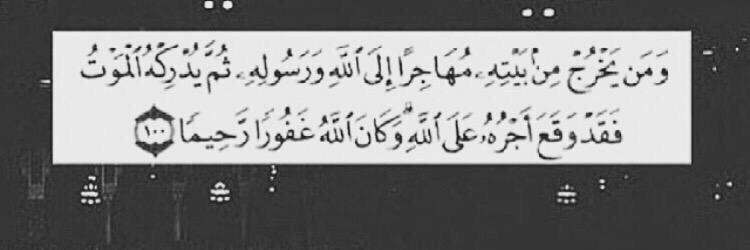 وَمَن يَخْرُجْ مِنۢ بَيْتِهِۦ مُهَاجِرًا إِلَى ٱللَّهِ وَرَسُولِهِۦ ثُمَّ يُدْرِكْهُ ٱلْمَوْتُ
فَقَدْ وَقَعَ أَجْرُهُۥ عَلَى ٱللَّهِ ۗ وَكَانَ ٱللَّهُ غَفُورًا رَّحِيمًا ١٠٠